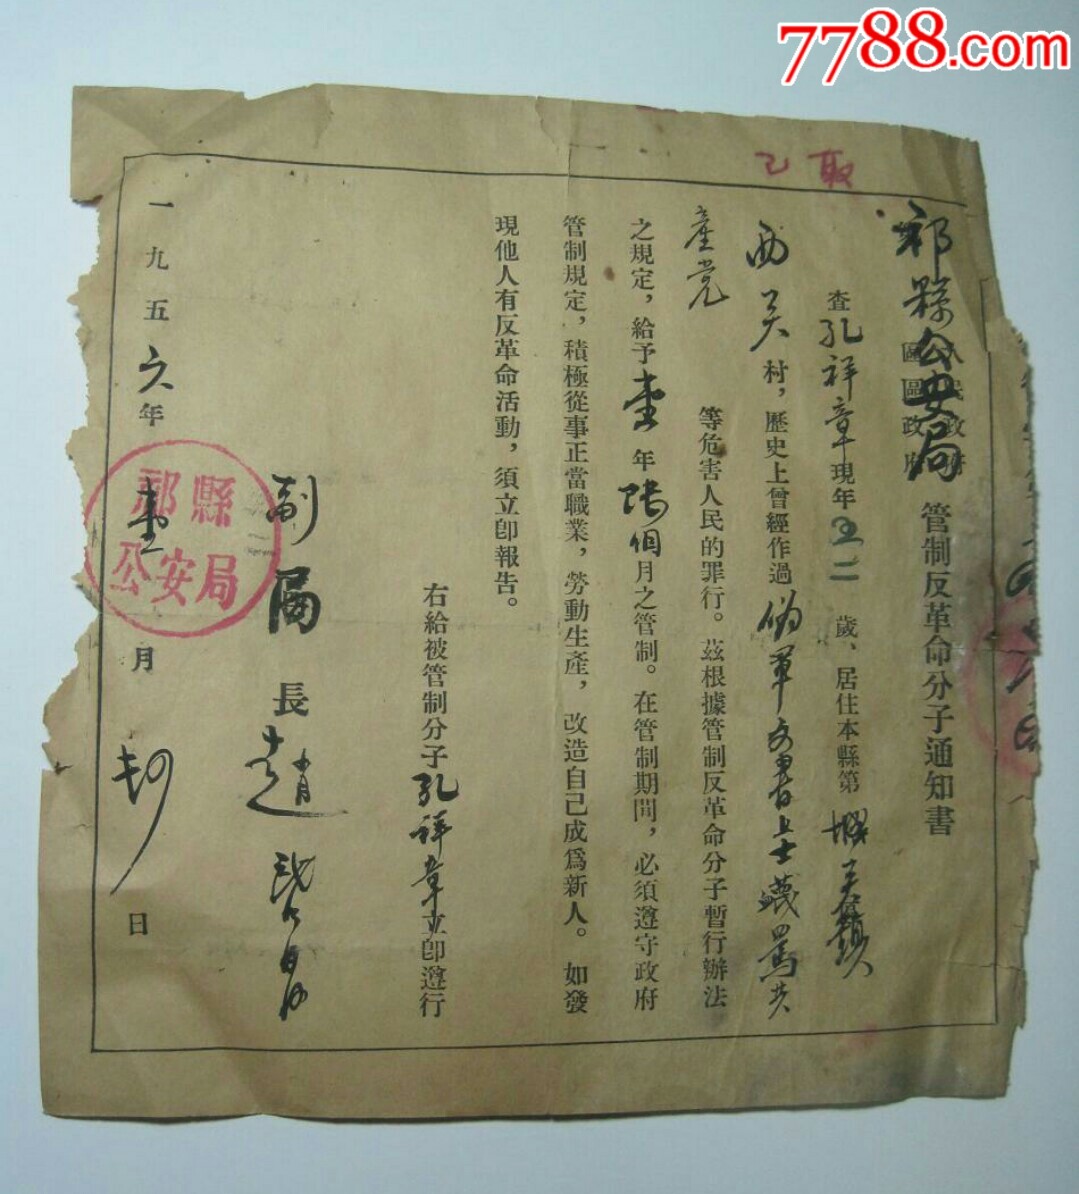 7788.com
已取
祁縣公安局管制反革命分子通知書
查孔祥章現年五二歲、居住本縣第城关鎮
西关村，歷史上曾經作過伪軍文書上士諷罵共
產党等危害人民的罪行。茲根據管制反革命分子暫行辦法
之規定，給予壹年陸個月之管制。在管制期間，必須遵守政府
管制規定，積極從事正當職業，勞動生產，改造自己成爲新人。如發
現他人有反革命活動，須立卽報告。
右給被管制分子孔祥章立卽遵行
副局長趙
一九五六年壹月日
祁縣
公安局